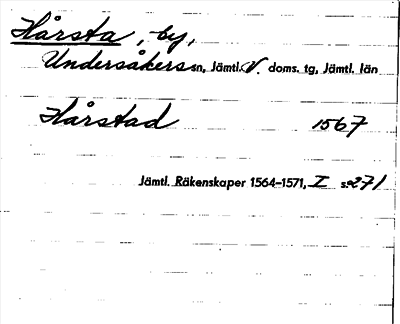 Hårsta, by,
Undersåkers sn, Jämtl. V. doms. tg, Jämtl. län
Hårstad 1567
Jämtl. Räkenskaper 1564-1571, I s. 271